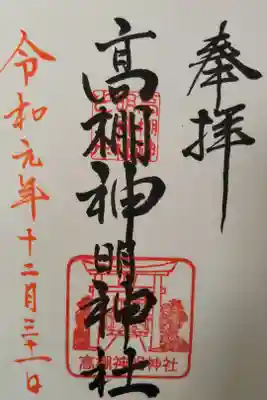 奉拝
高棚神明神社
令和元年十二月三十一日
高棚神明神社